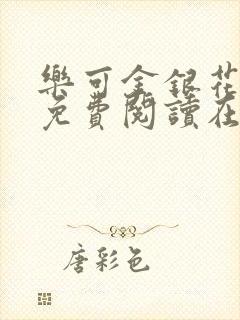 樂可金銀花
免費閱讀在
唐彩色